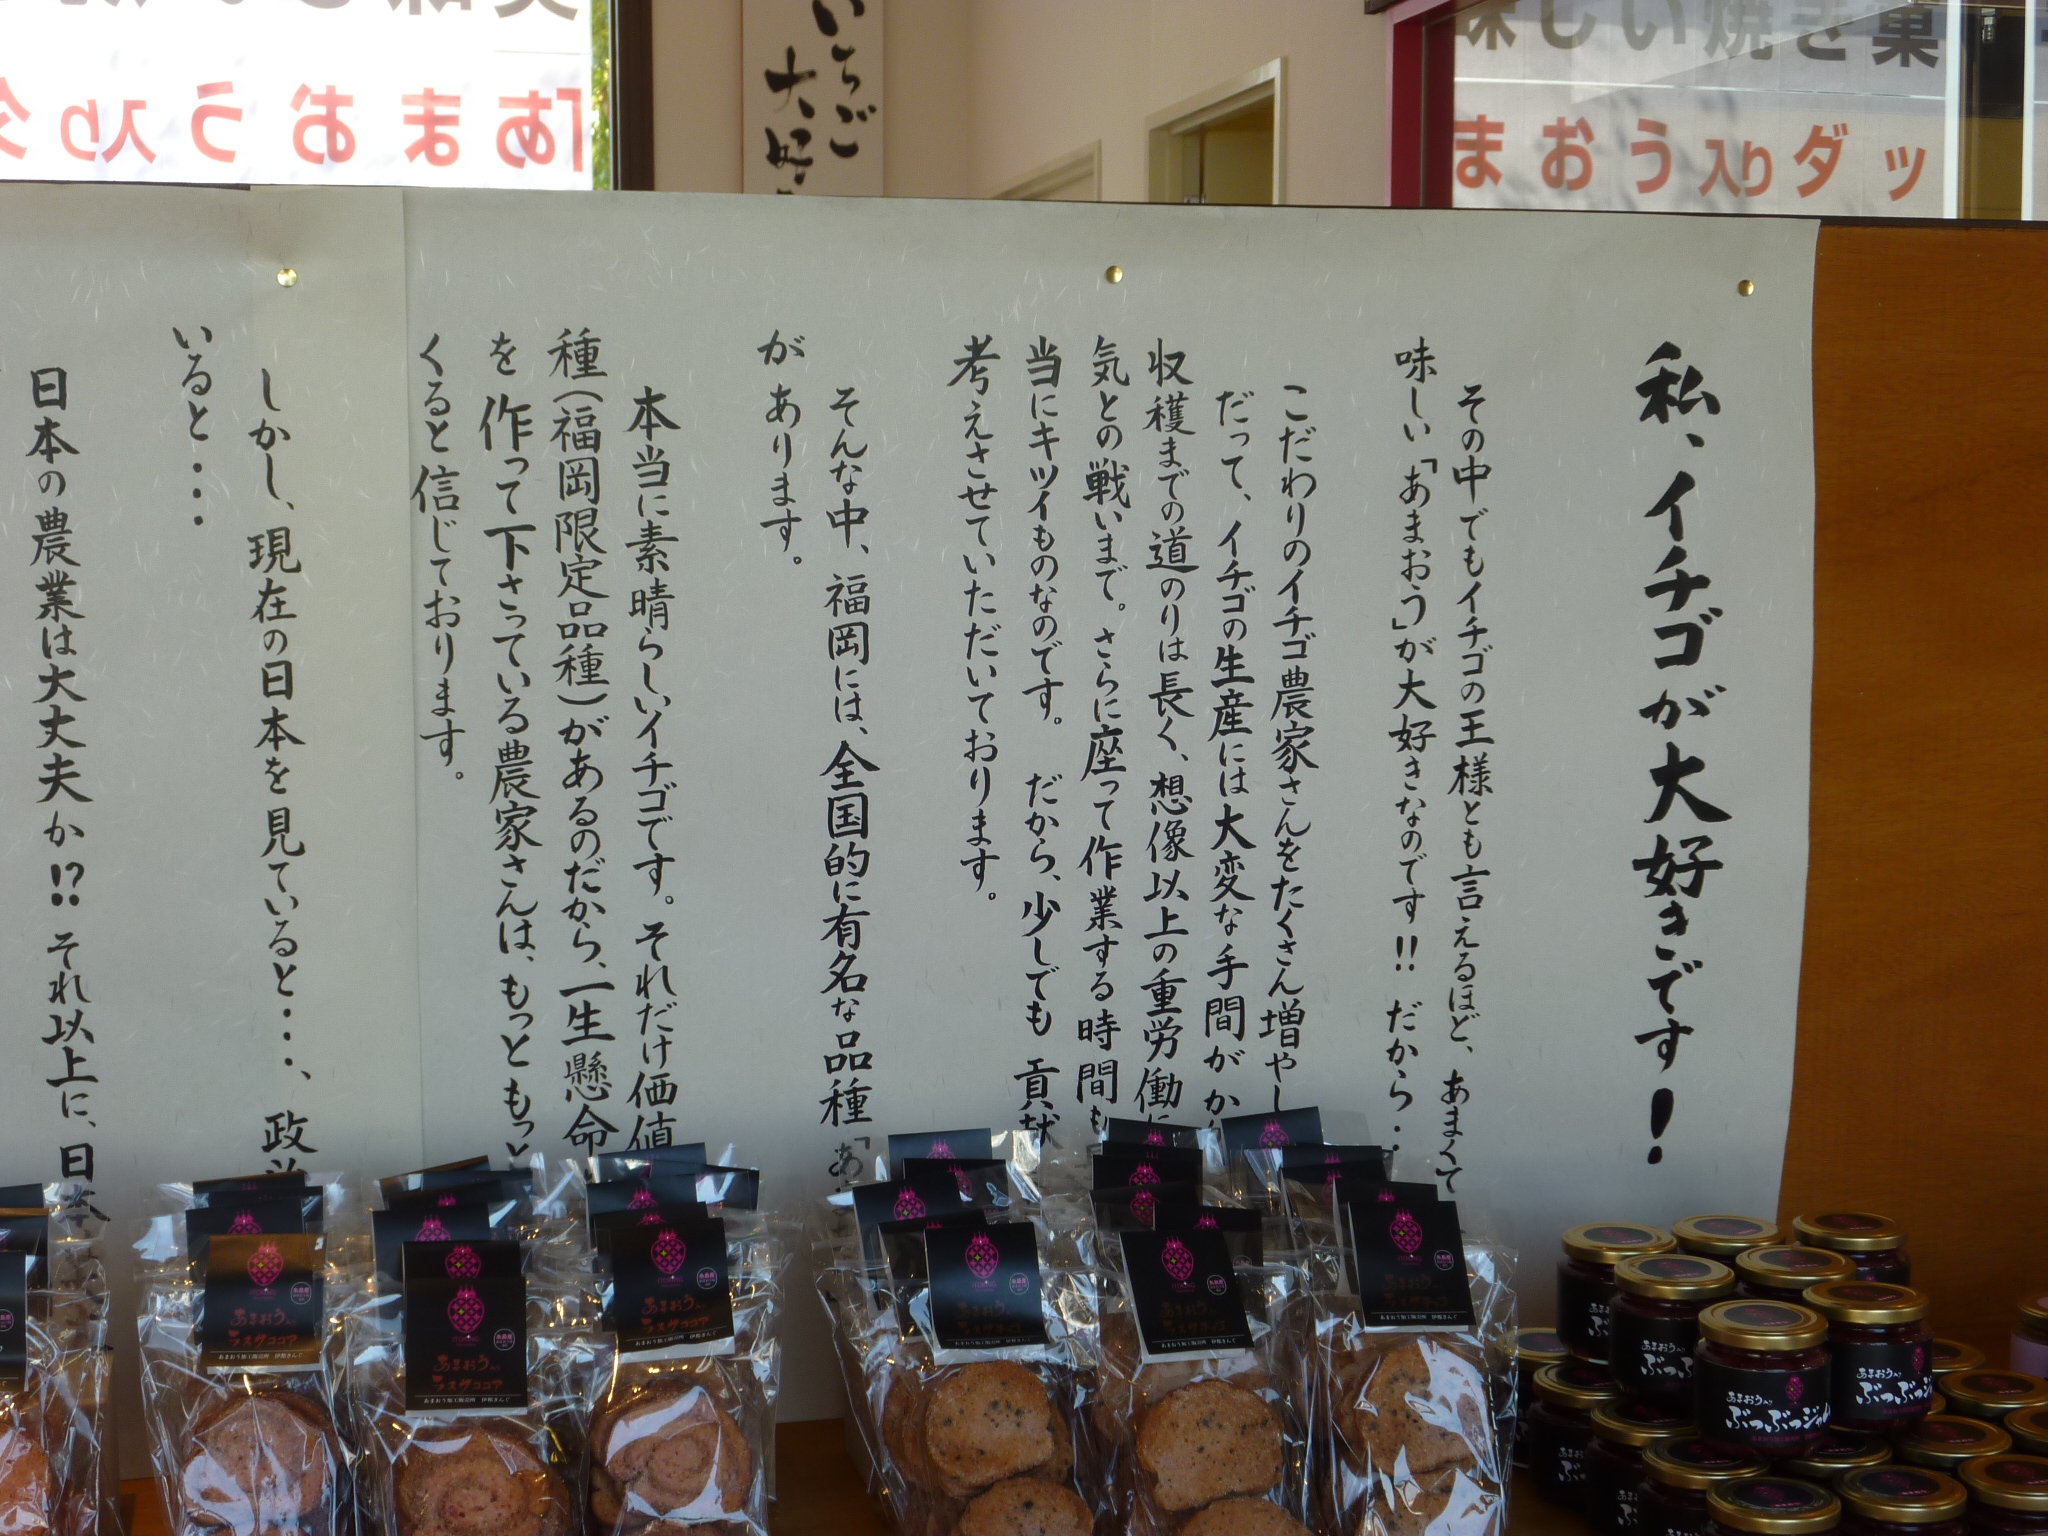 いちご
大好
味しい焼き菓
まおう入りダッ
「あまおう入り
私、イチゴが大好きです！
その中でもイチゴの王様とも言えるほど、あまくて
味しい「あまおう」が大好きなのです!! だから・・
こだわりのイチゴ農家さんをたくさん増やし
だって、イチゴの生産には大変な手間がか
収穫までの道のりは長く、想像以上の重労働に
気との戦いまで。さらに座って作業する時間も
当にキツイものなのです。 だから、少しでも 貢献
考えさせていただいております。
そんな中、福岡には、全国的に有名な品種「あ
が あります。
本当に素晴らしいイチゴです。それだけ価値
種（福岡限定品種）があるのだから、一生懸命
を 作って下さっている農家さんは、もっともっと
くると信じております。
しかし、現在の日本を見ていると・・・、政
いると・・・
日本の農業は大丈夫か!? それ以上に、日本
あまおう入り
ラスクココア
あまおう加工販売所 伊都きんぐ
あまおう入り
ラスクココア
あまおう加工販売所 伊都きんぐ
あまおう入り
ラスクココア
あまおう加工販売所 伊都きんぐ
あまおう入り
ぶつぶつジャム
あまおう入り
ぶつぶつジャム